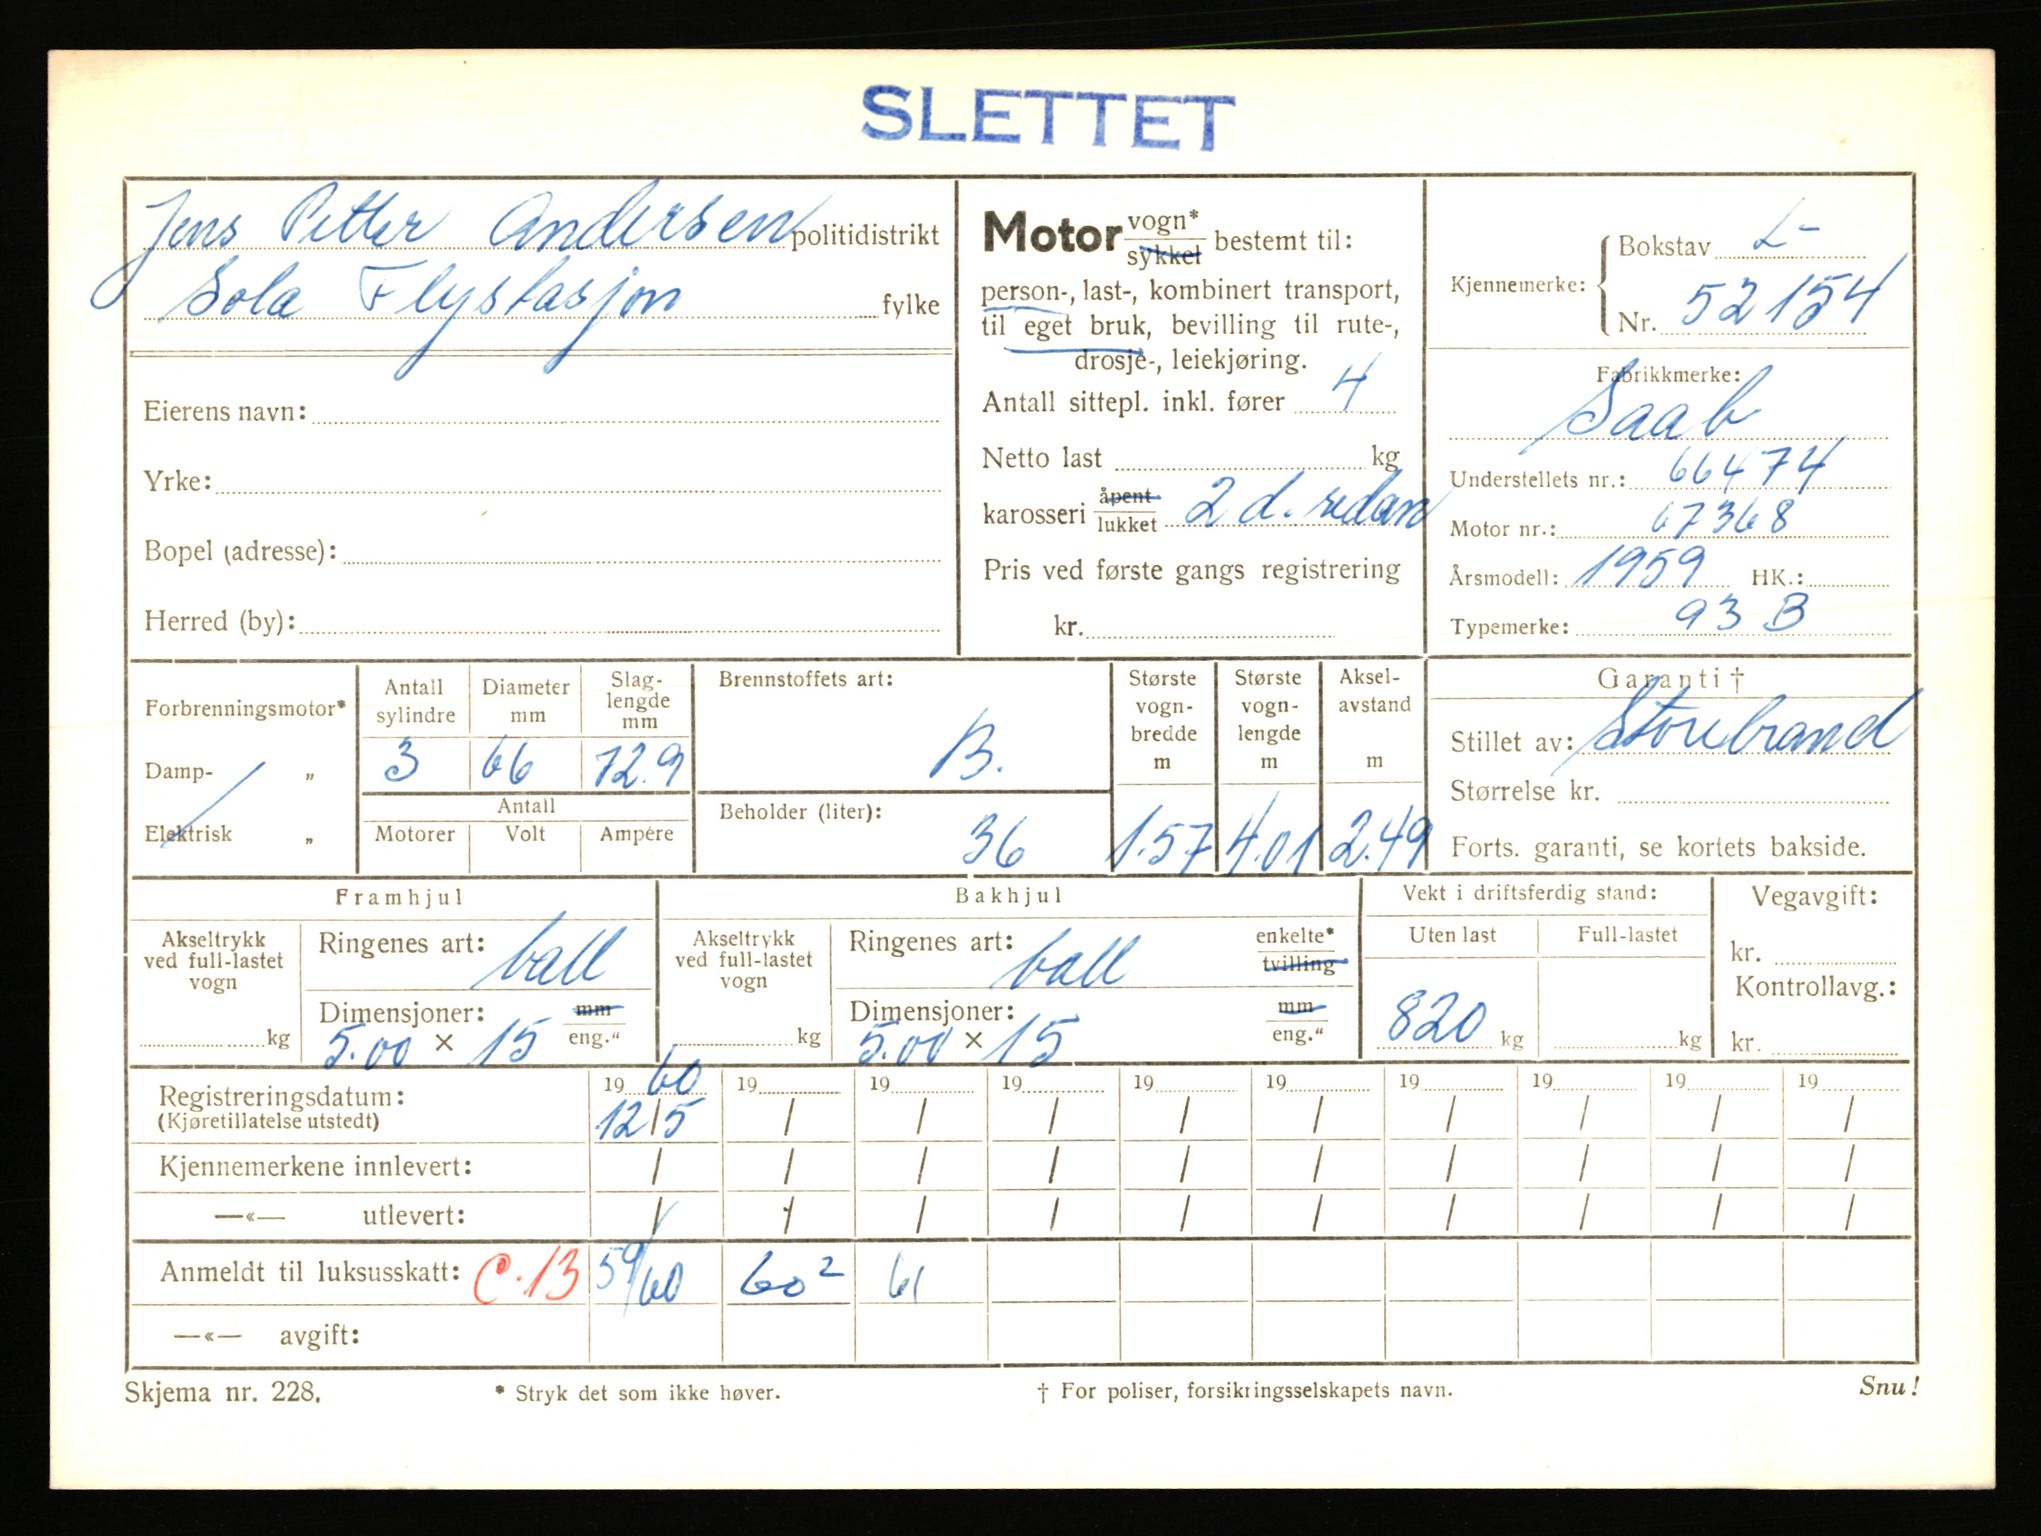 SLETTET
Jens Petter Andersen politidistrikt
Sola Flystasjon fylke
Eierens navn:
Yrke:
Bopel (adresse):
Herred (by):
Motor vogn*
sykkel bestemt til:
person-, last-, kombinert transport,
til eget bruk, bevilling til rute-,
drosje-, leiekjøring.
Antall sittepl. inkl. fører 4
Netto last kg
karosseri åpent
lukket 2 d. sedan
Pris ved første gangs registrering
kr.
Kjennemerke: Bokstav L-
Nr. 52154
Fabrikkmerke:
Saab
Understellets nr.: 66474
Motor nr.: 67368
Årsmodell: 1959 HK.:
Typemerke: 93 B
Forbrenningsmotor*
Damp- „
Elektrisk „
Antall sylindre Diameter mm Slag-lengde mm
3 66 72.9
Antall
Motorer Volt Ampére
Brennstoffets art:
B.
Beholder (liter):
36
Største vogn-bredde m
1.57
Største vogn-lengde m
4.01
Aksel-avstand m
2.49
Garanti †
Stillet av: Storebrand
Størrelse kr.
Forts. garanti, se kortets bakside.
Framhjul
Akseltrykk
ved full-lastet
vogn
kg
Ringenes art: ball
Dimensjoner: mm
5.00 × 15 eng.“
Bakhjul
Akseltrykk
ved full-lastet
vogn
kg
Ringenes art: ball enkelte*
tvilling
Dimensjoner: mm
5.00 × 15 eng.“
Vekt i driftsferdig stand:
Uten last Full-lastet
820 kg kg
Vegavgift:
kr.
Kontrollavg.:
kr.
Registreringsdatum: 19 60 19 19 19 19 19 19 19 19 19
(Kjøretillatelse utstedt) 12/5 / / / / / / / / /
Kjennemerkene innlevert: / / / / / / / / / /
—«— utlevert: / / / / / / / / / /
Anmeldt til luksusskatt: C.13 59/60 60² 61
—«— avgift:
Skjema nr. 228. * Stryk det som ikke høver. † For poliser, forsikringsselskapets navn. Snu!